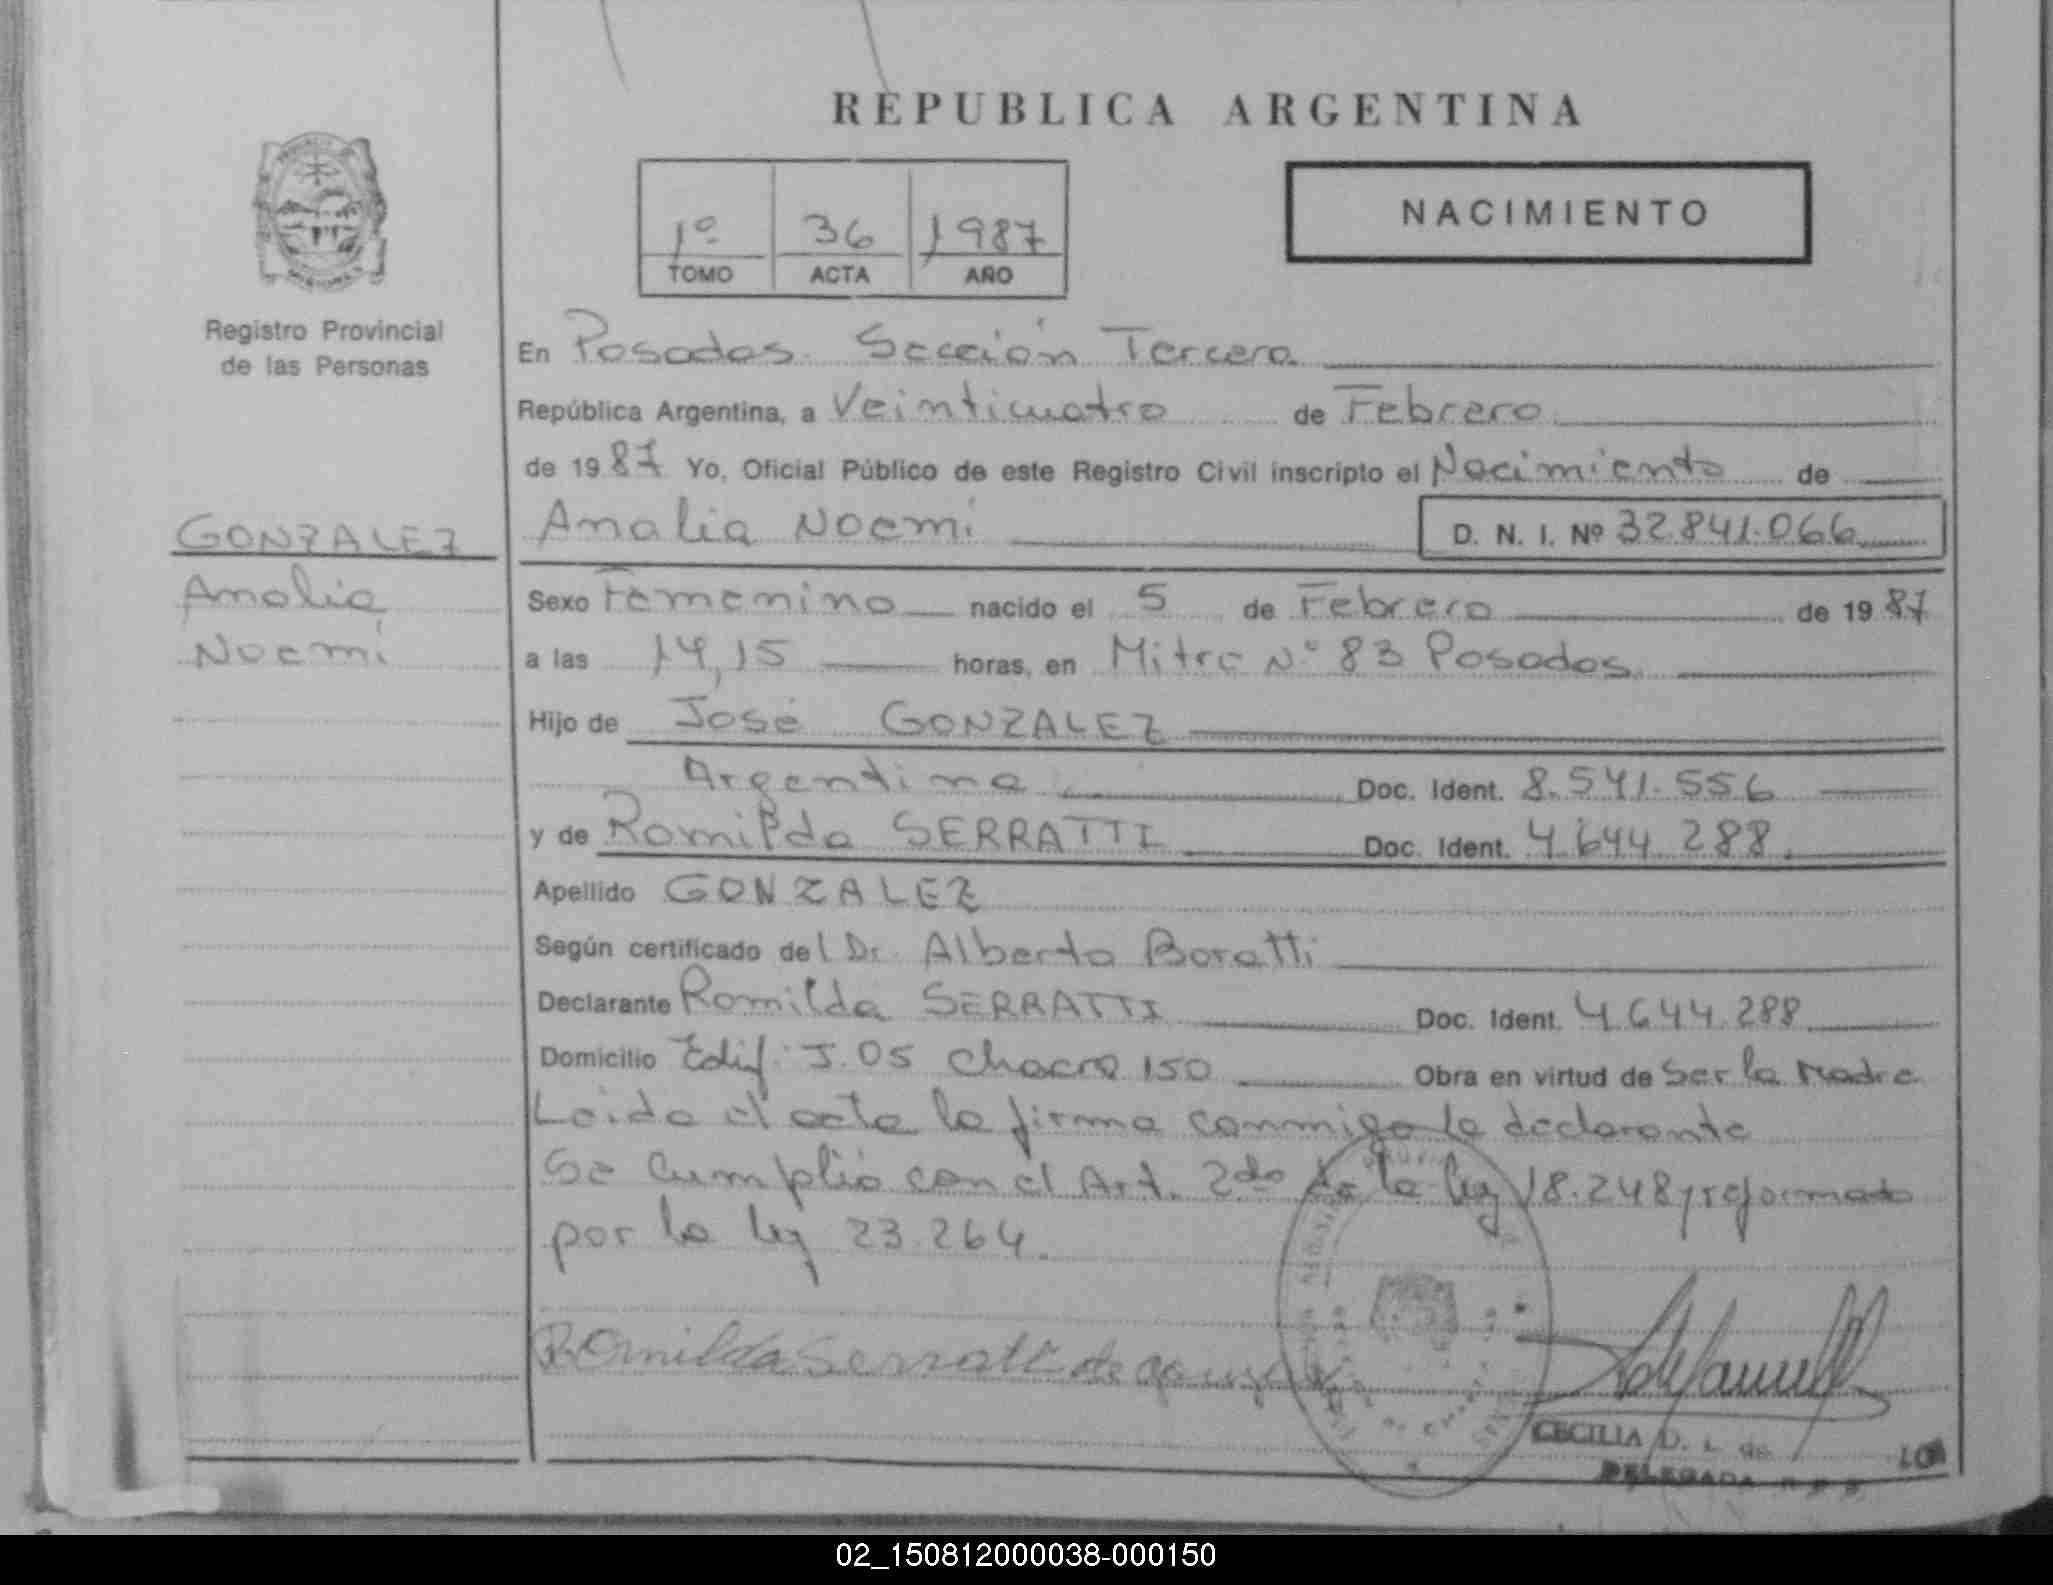 REPUBLICA ARGENTINA
1º 36 1987
TOMO ACTA AÑO
NACIMIENTO
Registro Provincial
de las Personas
GONZALEZ
Analia
Noemi
En Posadas. Sección Tercera
República Argentina, a Veinticuatro de Febrero
de 1987 Yo, Oficial Público de este Registro Civil inscripto el Nacimiento de
Analia Noemi D. N. I. Nº 32.841.066
Sexo Femenino nacido el 5 de Febrero de 1987
a las 14,15 horas, en Mitre Nº 83 Posadas.
Hijo de José GONZALEZ
Argentina Doc. Ident. 8.541.556
y de Romilda SERRATTI Doc. Ident. 4.644.288.
Apellido GONZALEZ
Según certificado del Dr. Alberto Boratti
Declarante Romilda SERRATTI Doc. Ident. 4.644.288
Domicilio Edif. J.05 Chacra 150 Obra en virtud de Ser la Madre
Leida el acta la firma conmigo la declarante
Se Cumplió con el Art. 2do de la ley 18.248 y reformado
por la ley 23.264.
Romilda Serratti de
CECILIA D. L. de
DELEGADA
02_150812000038-000150